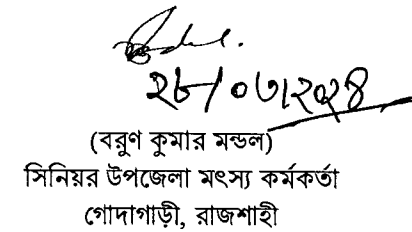 ২৮/০৩/২০২৪
(বরুণ কুমার মন্ডল)
সিনিয়র উপজেলা মৎস্য কর্মকর্তা
গোদাগাড়ী, রাজশাহী